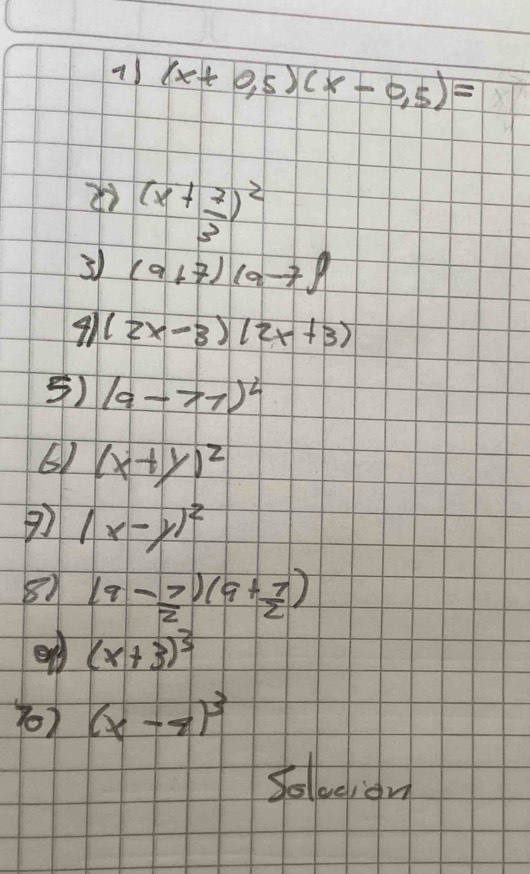 1) (x + 0,5)(x - 0,5) =
2) (x + 1/3)²
3) (a + 7)(a - 7)
4) (2x - 3)(2x + 3)
5) (a - 11)²
6) (x + y)²
7) (x - y)²
8) (a - 1/2)(a + 1/2)
9) (x + 3)³
10) (x - 4)³
Solucion